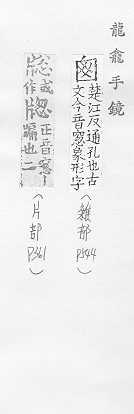 龍龕手鏡
囪 楚江反通孔也古
文今音窓象形字
（雜部
P544）
牕或
作牎 正音窓
牖也二
（片部
P361）